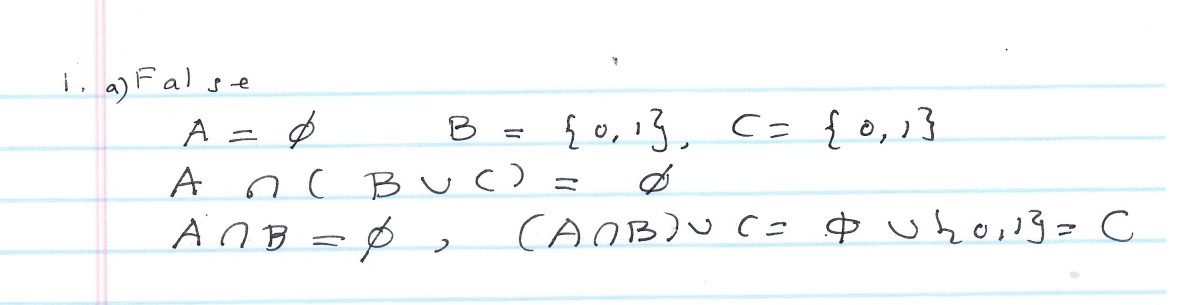 1. a) False
A = ∅ B = {0,1}, C = {0,1}
A ∩ (B ∪ C) = ∅
A ∩ B = ∅, (A ∩ B) ∪ C = ∅ ∪ {0,1} = C